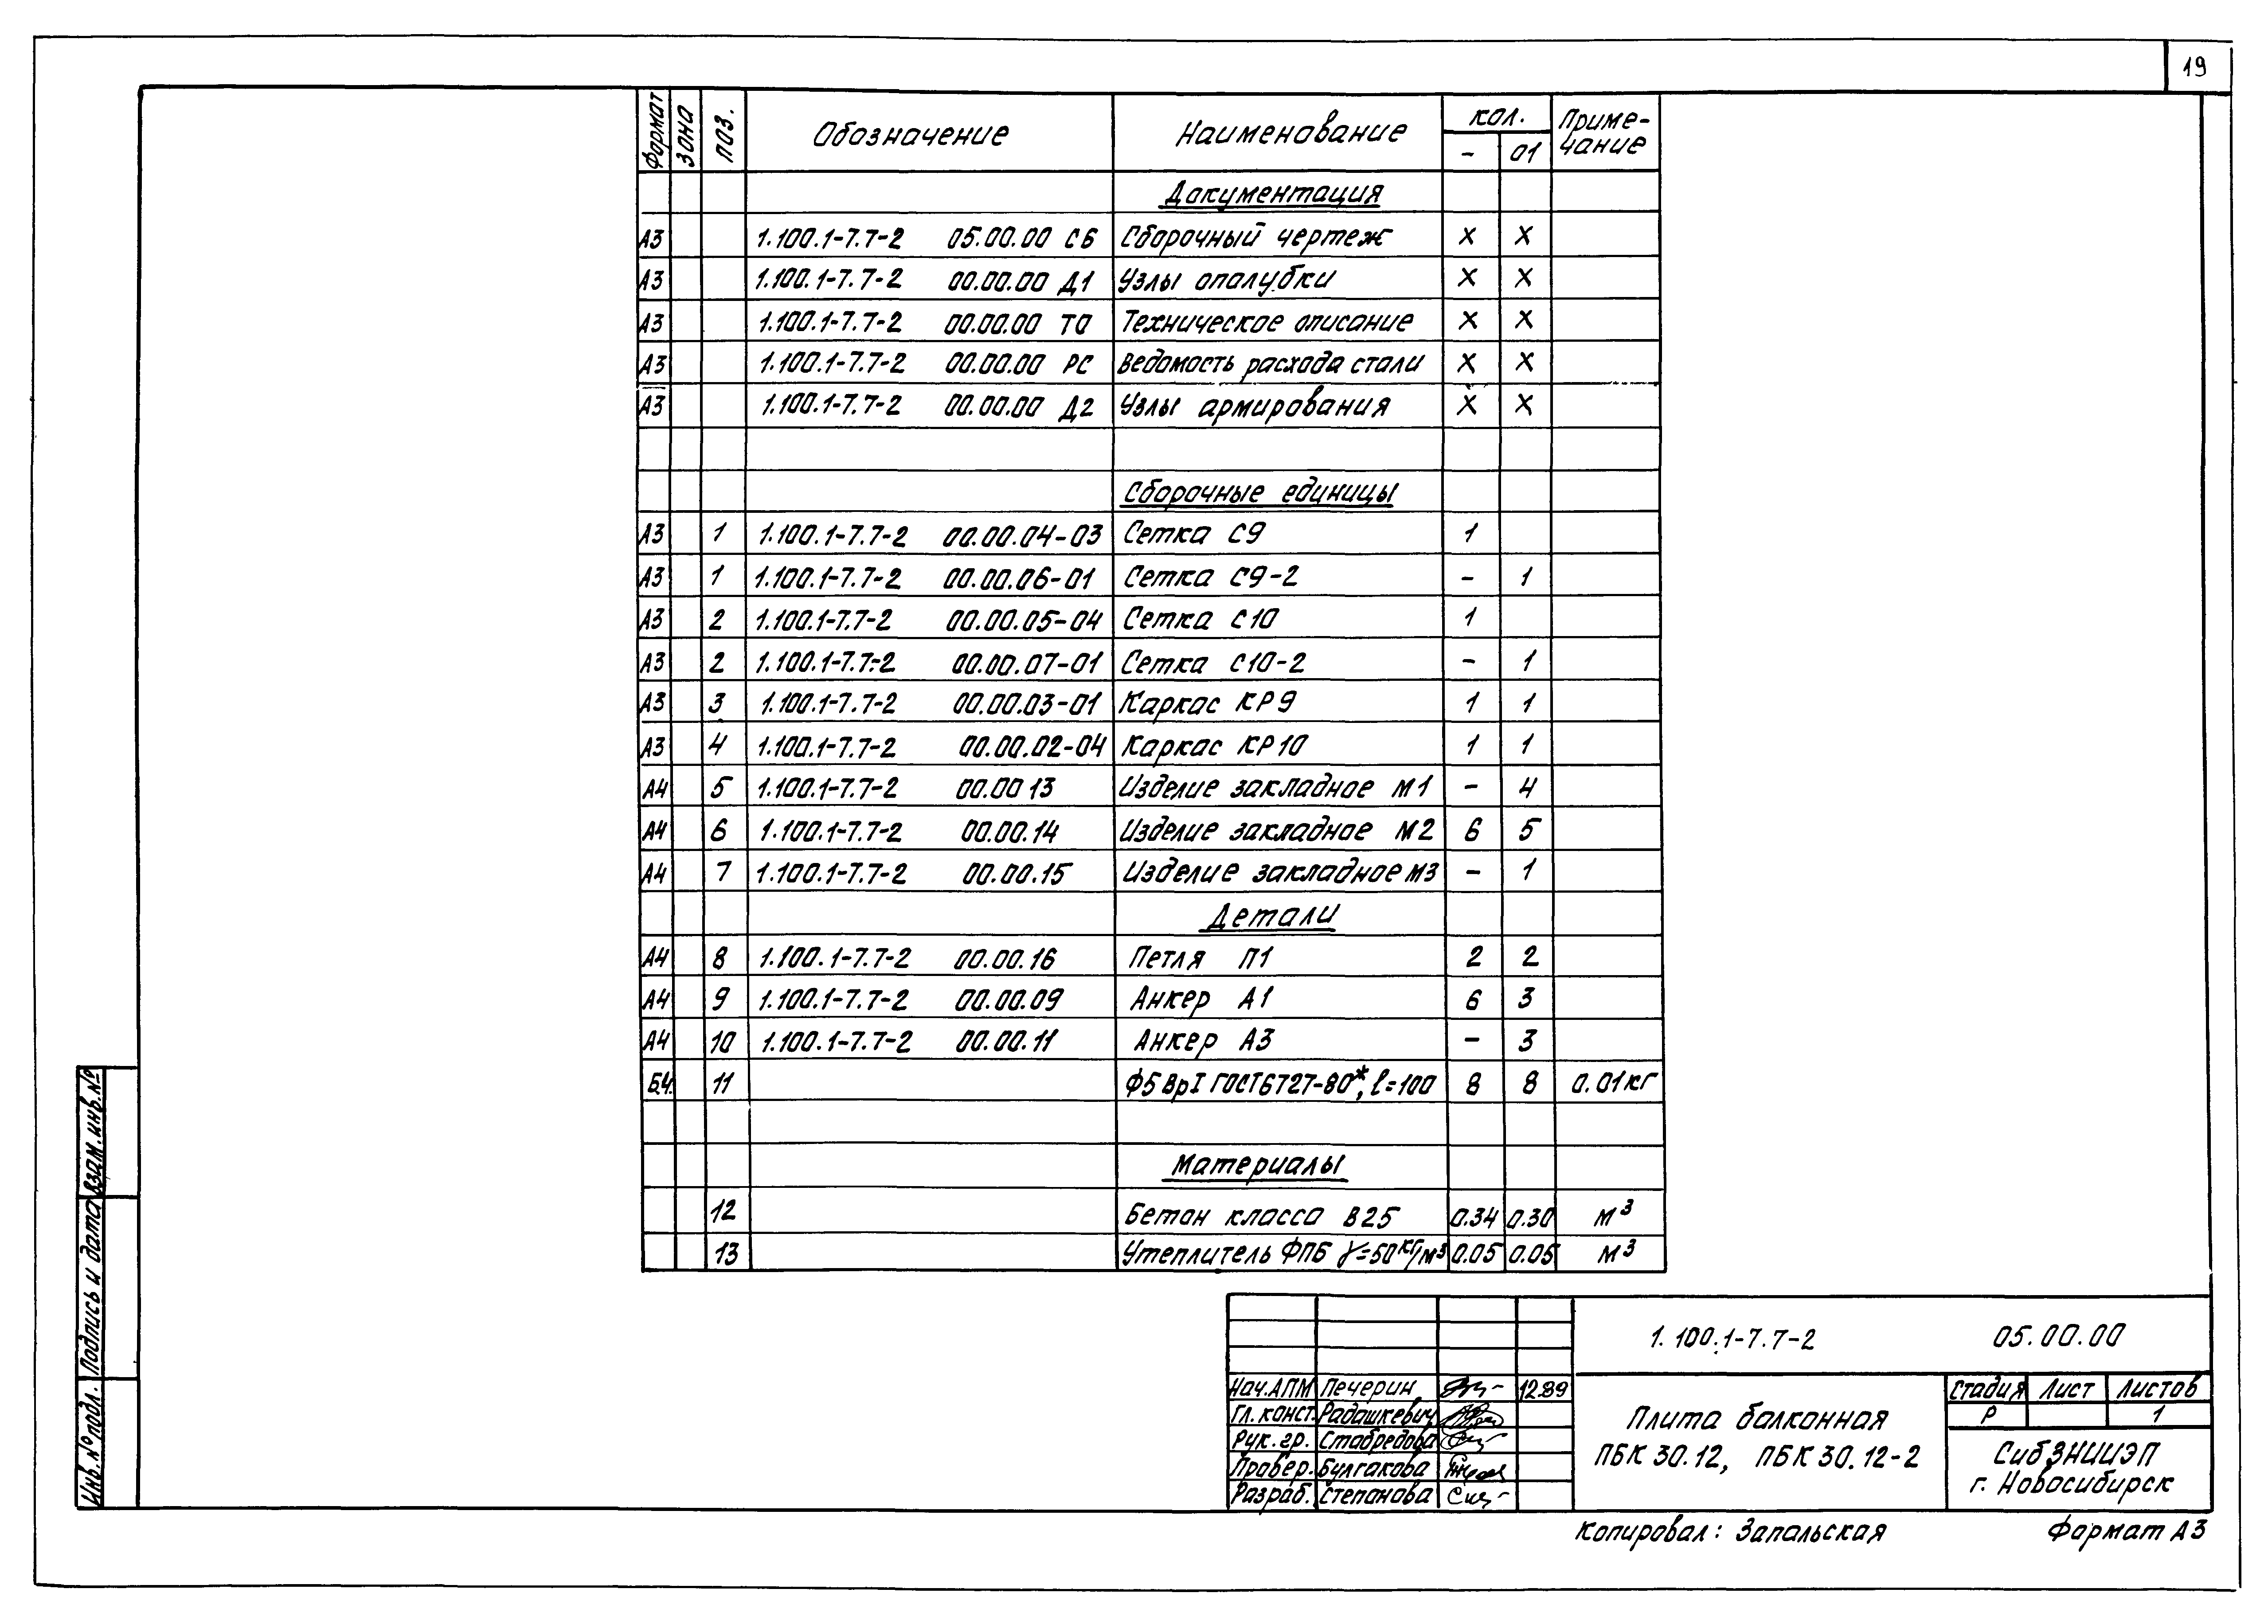 19
Формат Зона Поз. Обозначение Наименование Кол. Приме-
- 01 чание
Документация
А3 1.100.1-7.7-2 05.00.00 СБ Сборочный чертеж х х
А3 1.100.1-7.7-2 00.00.00 Д1 Узлы опалубки х х
А3 1.100.1-7.7-2 00.00.00 ТО Техническое описание х х
А3 1.100.1-7.7-2 00.00.00 РС Ведомость расхода стали х х
А3 1.100.1-7.7-2 00.00.00 Д2 Узлы армирования х х
Сборочные единицы
А3 1 1.100.1-7.7-2 00.00.04-03 Сетка С9 1
А3 1 1.100.1-7.7-2 00.00.06-01 Сетка С9-2 - 1
А3 2 1.100.1-7.7-2 00.00.05-04 Сетка С10 1
А3 2 1.100.1-7.7-2 00.00.07-01 Сетка С10-2 - 1
А3 3 1.100.1-7.7-2 00.00.03-01 Каркас КР9 1 1
А3 4 1.100.1-7.7-2 00.00.02-04 Каркас КР10 1 1
А4 5 1.100.1-7.7-2 00.00 13 Изделие закладное М1 - 4
А4 6 1.100.1-7.7-2 00.00.14 Изделие закладное М2 6 5
А4 7 1.100.1-7.7-2 00.00.15 Изделие закладное М3 - 1
Детали
А4 8 1.100.1-7.7-2 00.00.16 Петля П1 2 2
А4 9 1.100.1-7.7-2 00.00.09 Анкер А1 6 3
А4 10 1.100.1-7.7-2 00.00.11 Анкер А3 - 3
Б4. 11 Ф5 ВрI ГОСТ 6727-80*, l=100 8 8 0.01кг
Материалы
12 Бетон класса В25 0.34 0.30 м³
13 Утеплитель ФПБ γ=50кг/м³ 0.05 0.05 м³
Инв. № подл. Подпись и дата Взам. инв. №
1.100.1-7.7-2 05.00.00
Нач. АПМ Печерин 12.89
Гл. конст. Радашкевич
Рук. гр. Стабредова
Провер. Булгакова
Разраб. Степанова
Плита балконная
ПБК 30.12, ПБК 30.12-2
Стадия Лист Листов
Р 1
СибЗНИИЭП
г. Новосибирск
Копировал: Запальская Формат А3